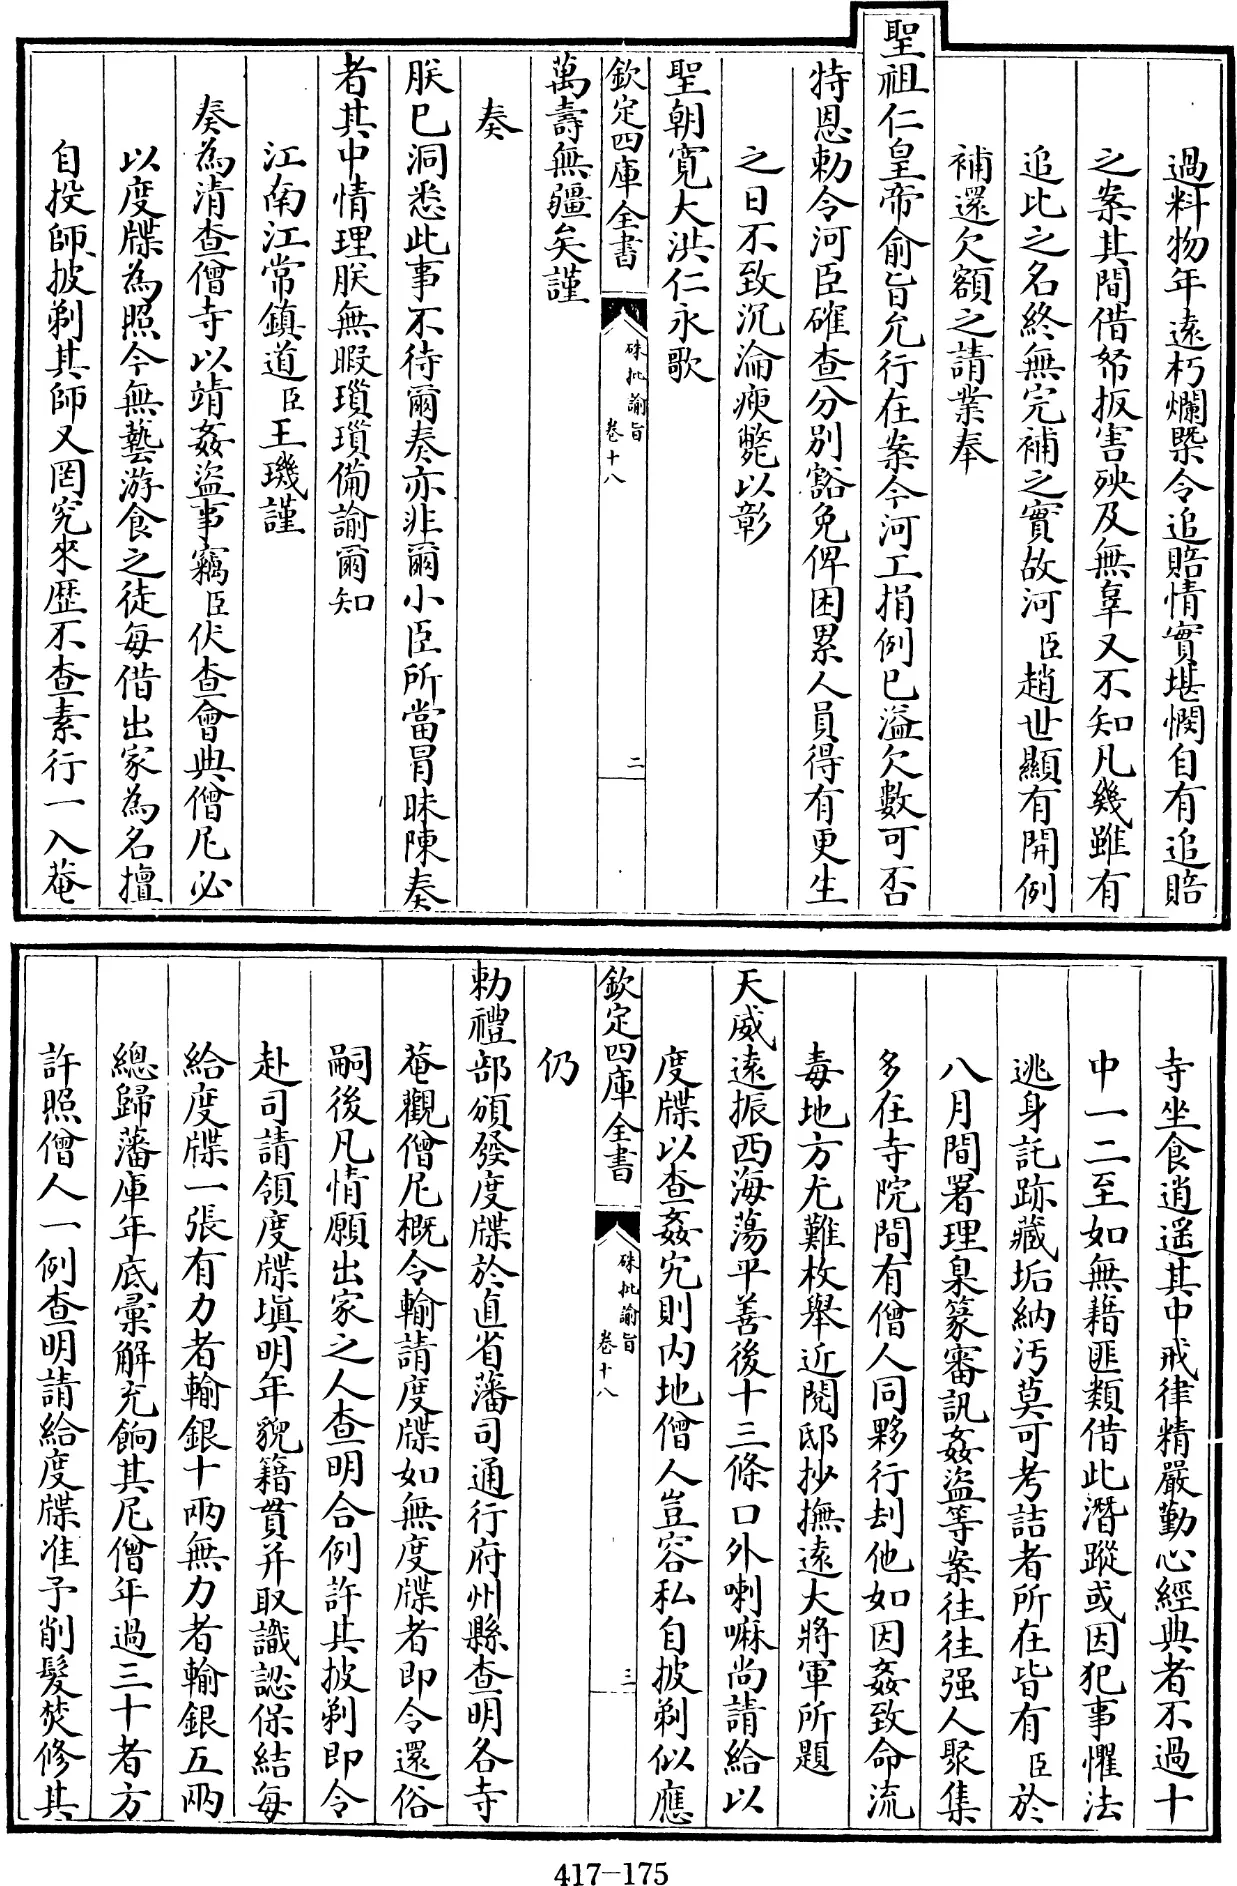 過料物年遠朽爛槩令追賠情實堪憫自有追賠
之案其間借帑扳害殃及無辜又不知凡幾雖有
追比之名終無完補之實故河臣趙世顯有開例
補還欠額之請業奉
聖祖仁皇帝俞旨允行在案今河工捐例已溢欠數可否
特恩勅令河臣確查分别豁免俾困累人員得有更生
之日不致沉淪瘐斃以彰
聖朝寛大洪仁永歌
欽定四庫全書 硃批諭旨 卷十八 二
萬壽無疆矣謹
奏
朕已洞悉此事不待爾奏亦非爾小臣所當冐昧陳奏
者其中情理朕無暇瑣瑣備諭爾知
江南江常鎮道臣王璣謹
奏為清查僧寺以靖姦盜事竊臣伏查會典僧尼必
以度牒為照今無藝游食之徒每借出家為名擅
自投師披剃其師又罔究來歴不查素行一入菴
寺坐食逍遥其中戒律精嚴勤心經典者不過十
中一二至如無藉匪類借此潛蹤或因犯事懼法
逃身託跡藏垢納汚莫可考詰者所在皆有臣於
八月間署理臬篆審訊姦盜等案往往强人聚集
多在寺院間有僧人同夥行刦他如因姦致命流
毒地方尤難枚舉近閱邸抄撫遠大將軍所題
天威遠振西海蕩平善後十三條口外喇嘛尚請給以
度牒以查姦宄則内地僧人豈容私自披剃似應
欽定四庫全書 硃批諭旨 卷十八 三
仍
勅禮部頒發度牒於直省藩司通行府州縣查明各寺
菴觀僧尼概令輸請度牒如無度牒者即令還俗
嗣後凡情願出家之人查明合例許其披剃即令
赴司請領度牒塡明年貌籍貫并取識認保結每
給度牒一張有力者輸銀十兩無力者輸銀五兩
總歸藩庫年底彙解充餉其尼僧年過三十者方
許照僧人一例查明請給度牒准予削髮焚修其
417-175